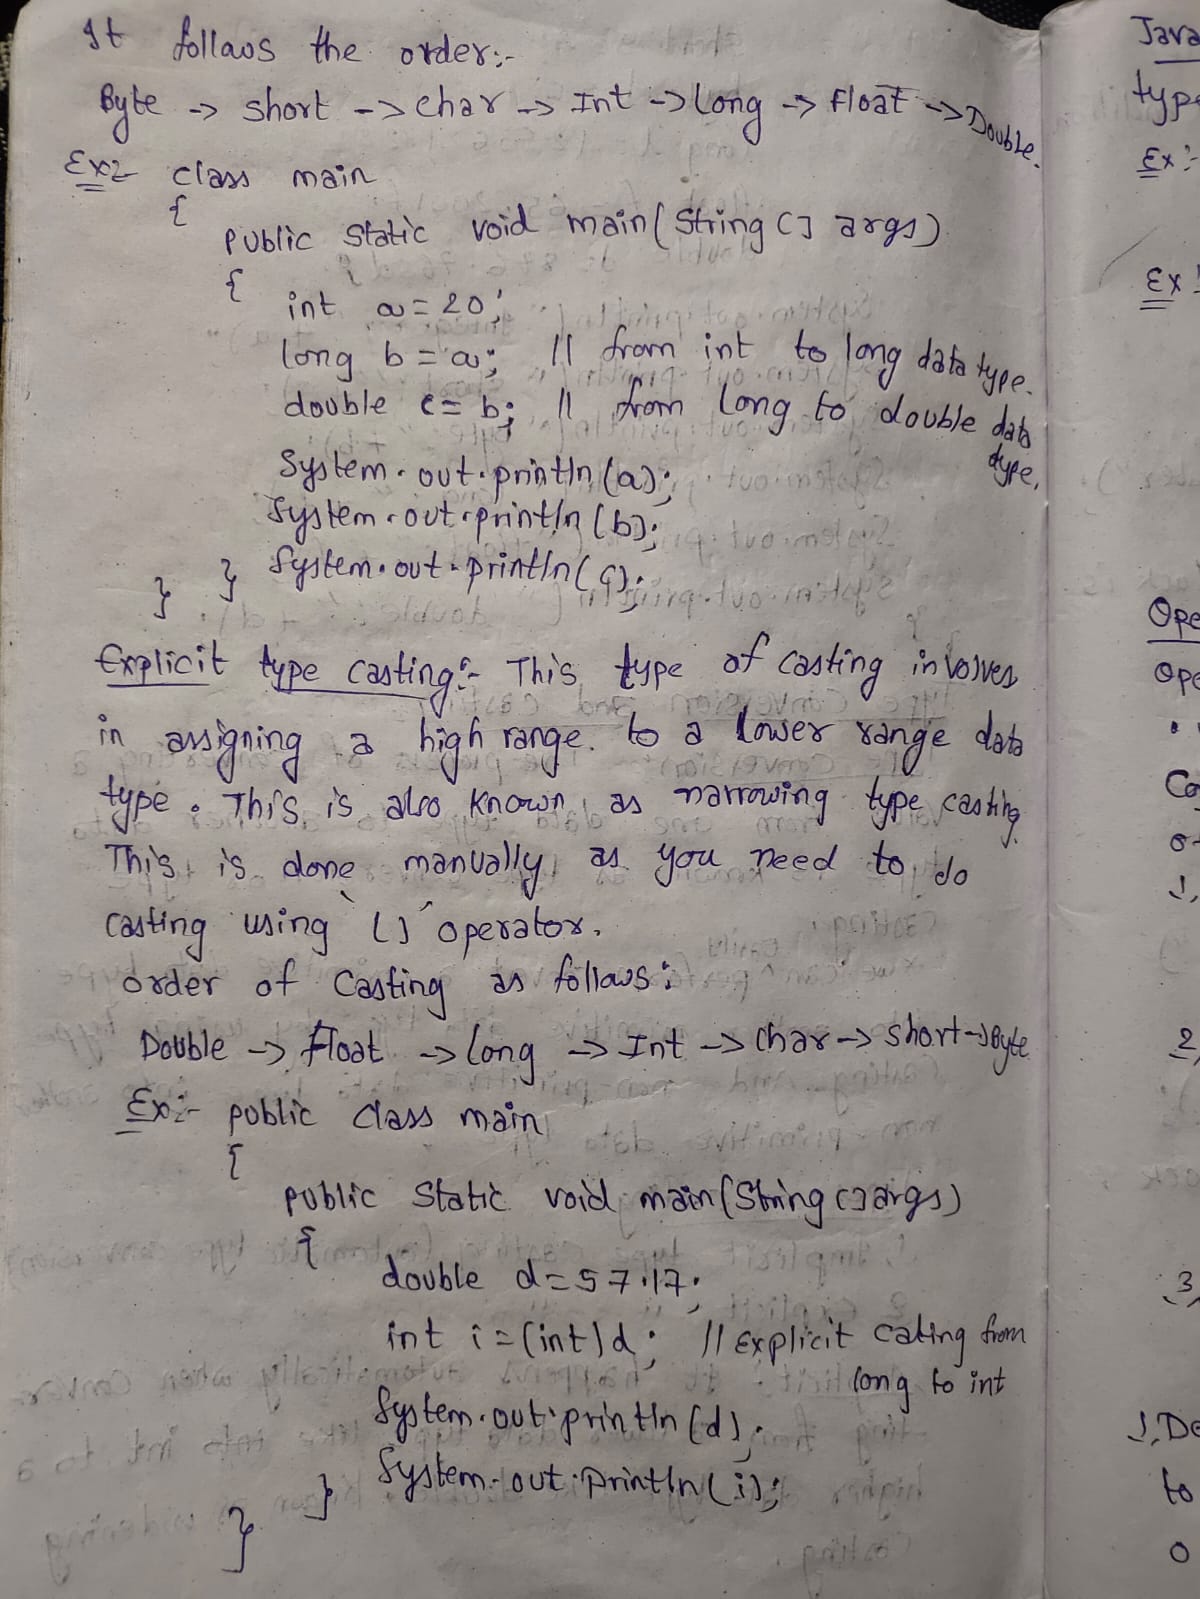 It follows the order:-
Byte -> short -> char -> Int -> Long -> Float -> Double.
Ex:- class main
{
public static void main(String [] args)
{
int a = 20;
long b = a; // from int to long data type.
double c = b; // from long to double data type.
System.out.println(a);
System.out.println(b);
System.out.println(c);
} }
Explicit type casting:- This type of casting involves
in assigning a high range. to a lower range data
type. This is also known as narrowing type casting.
This is done manually as you need to do
casting using '()' operator.
order of Casting as follows:
Double -> Float -> Long -> Int -> Char -> short -> Byte
Ex:- public class main
{
public static void main(String [] args)
{
double d = 57.17;
int i = (int)d; // Explicit cating from
long to int
System.out.println(d);
System.out.println(i);
}
}
Java
type
Ex:-
Ex:
Ope
Ope
Co
1,
2,
3,
1, De
to
o